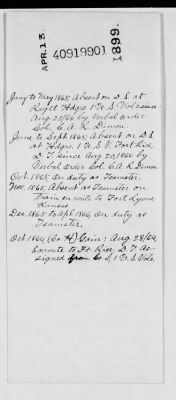 APR. 13
40919901
1899.
Jany to May 1865, Absent on D.S. at
Regt Hdqrs. 1 U.S. Vols since
Aug 20/64 by Verbal order
Col. C.A.R. Dimon
June to Sept. 1865, Absent on D.S.
at Hdqrs. 1 U.S.V. Fort Rice,
D.T. since Aug 20/1864 by
Verbal order Col. C.A.R. Dimon
Oct. 1865, On duty as Teamster.
Nov. 1865, Absent as Teamster on
train enroute to Fort Lyons
Kansas
Dec. 1865 to Apl 1866, On duty as
Teamster.
Oct. 1864 (Co H) Gain: Aug. 28/64,
Enroute to Ft Rice D.T. As-
signed from Co I, 1 U.S. Vols.